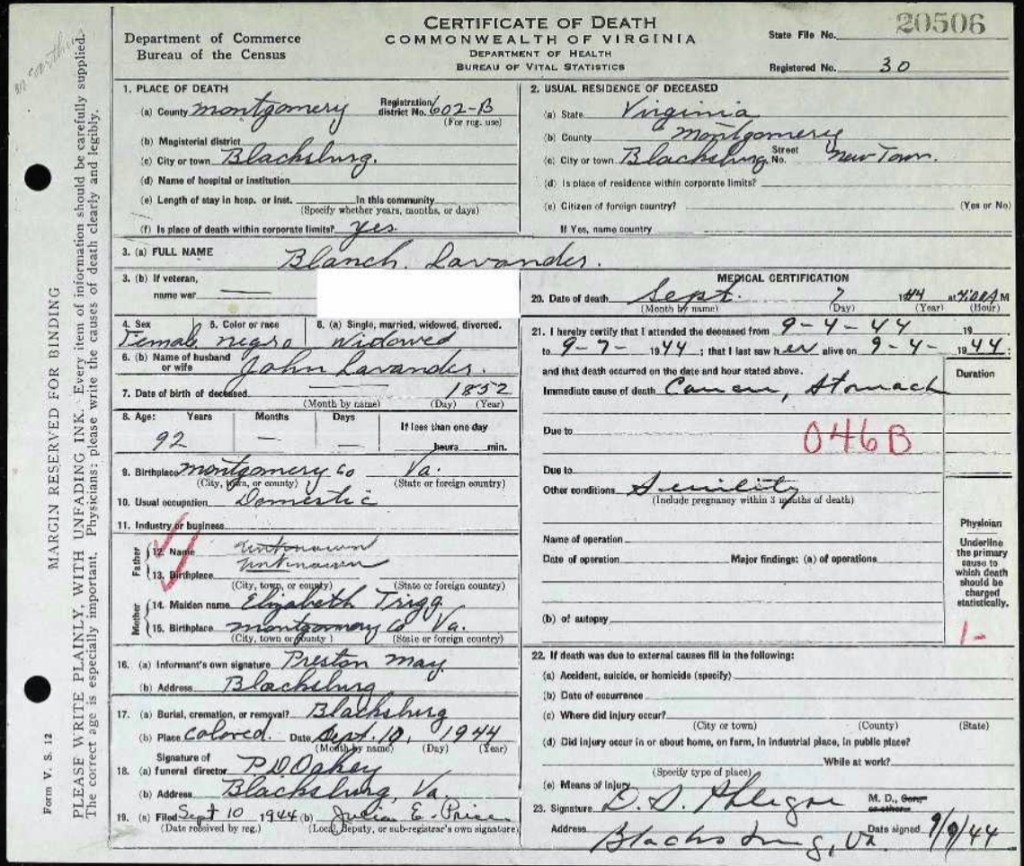 CERTIFICATE OF DEATH
COMMONWEALTH OF VIRGINIA
DEPARTMENT OF HEALTH
BUREAU OF VITAL STATISTICS
Department of Commerce
Bureau of the Census
State File No. 20506
Registered No. 30
MARGIN RESERVED FOR BINDING
PLEASE WRITE PLAINLY, WITH UNFADING INK. Every item of information should be carefully supplied.
The correct age is especially important. Physicians: please write the causes of death clearly and legibly.
Form V. S. 12
1. PLACE OF DEATH
(a) County Montgomery Registration district No. 602-B
(For reg. use)
(b) Magisterial district
(c) City or town Blacksburg.
(d) Name of hospital or institution
(e) Length of stay in hosp. or inst. In this community
(Specify whether years, months, or days)
(f) Is place of death within corporate limits? yes
2. USUAL RESIDENCE OF DECEASED
(a) State Virginia
(b) County Montgomery
(c) City or town Blacksburg Street No. New Town.
(d) Is place of residence within corporate limits?
(e) Citizen of foreign country? (Yes or No)
If Yes, name country
3. (a) FULL NAME Blanch Lavander.
3. (b) If veteran,
name war
4. Sex 5. Color or race 6. (a) Single, married, widowed, divorced.
Female negro Widowed
6. (b) Name of husband
or wife John Lavander.
7. Date of birth of deceased 1852
(Month by name) (Day) (Year)
8. Age: Years Months Days If less than one day
92 — — hours min.
9. Birthplace Montgomery Co Va.
(City, town, or county) (State or foreign country)
10. Usual occupation Domestic
11. Industry or business
Father
12. Name unknown
13. Birthplace unknown
(City, town, or county) (State or foreign country)
Mother
14. Maiden name Elizabeth Trigg
15. Birthplace Montgomery Co Va.
(City, town or county) (State or foreign country)
16. (a) Informant's own signature Preston May
(b) Address Blacksburg
17. (a) Burial, cremation, or removal? Blacksburg
(b) Place Colored. Date Sept. 10, 1944
(Month by name) (Day) (Year)
Signature of
18. (a) funeral director P.D. Oakey
(b) Address Blacksburg, Va
19. (a) Filed Sept 10 1944 (b) Julia E. Price
(Date received by reg.) (Local, Deputy, or sub-registrar's own signature)
MEDICAL CERTIFICATION
20. Date of death Sept. 7 1944 at 4:00 A M
(Month by name) (Day) (Year) (Hour)
21. I hereby certify that I attended the deceased from 9-4-44 19
to 9-7- 1944; that I last saw her alive on 9-4- 1944:
and that death occurred on the date and hour stated above.
Duration
Immediate cause of death Cancer, Stomach
Due to
046B
Due to
Other conditions Senility
(Include pregnancy within 3 months of death)
Name of operation
Date of operation Major findings: (a) of operations
(b) of autopsy
Physician
Underline
the primary
cause to
which death
should be
charged
statistically.
1-
22. If death was due to external causes fill in the following:
(a) Accident, suicide, or homicide (specify)
(b) Date of occurrence
(c) Where did injury occur?
(City or town) (County) (State)
(d) Did injury occur in or about home, on farm, in industrial place, in public place?
While at work?
(Specify type of place)
(e) Means of injury
23. Signature D. S. Phlegar M. D., Cor. or other
Address Blacksburg, Va. Date signed 9/9/44